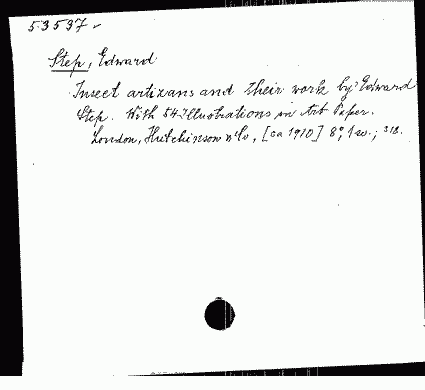 53597
Step, Edward
Insect artizans and their work by Edward
Step. With 54 illustrations in Art Paper.
London, Hutchinson & Co, [ca 1910] 8°, 1 vo.; 318.